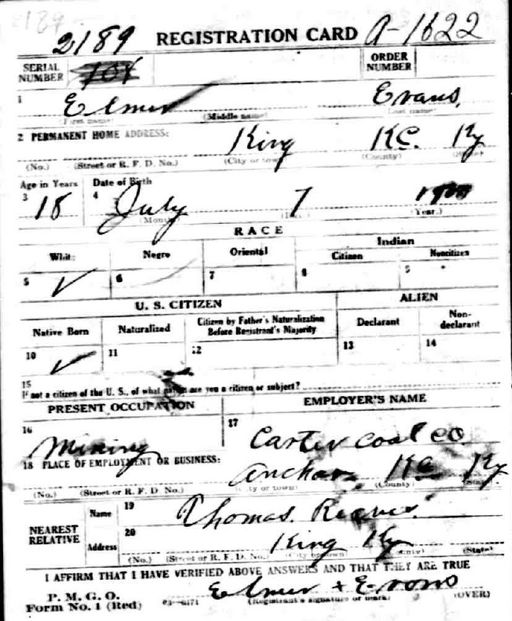 189
2189 REGISTRATION CARD A-1622
SERIAL NUMBER ORDER NUMBER
1 Elmer Evans,
(First name) (Middle name) (Last name)
2 PERMANENT HOME ADDRESS: King KC. Ky
(No.) (Street or R. F. D. No.) (City or town) (County) (State)
Age in Years Date of Birth
3 18 4 July 7
(Month) (Year.)
RACE
White Negro Oriental Indian
Citizen Noncitizen
5 ✓ 6 7 8 9
U. S. CITIZEN ALIEN
Native Born Naturalized Citizen by Father's Naturalization Before Registrant's Majority Declarant Non-declarant
10 ✓ 11 12 13 14
15
If not a citizen of the U. S., of what nation are you a citizen or subject?
PRESENT OCCUPATION EMPLOYER'S NAME
16 Mining 17 Carter Coal Co
18 PLACE OF EMPLOYMENT OR BUSINESS: Anchor KC Ky
(No.) (Street or R. F. D. No.) (City or town) (County) (State)
NEAREST RELATIVE
Name 19 Thomas
Address 20 King Ky
(No.) (Street or R. F. D. No.) (City or town) (County) (State)
I AFFIRM THAT I HAVE VERIFIED ABOVE ANSWERS AND THAT THEY ARE TRUE
P. M. G. O.
Form No. 1 (Red) 03—6171 Elmer + Evans
(Registrant's signature or mark) (OVER)